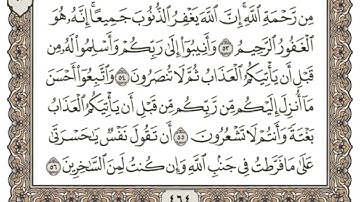 مِن رَّحْمَةِ ٱللَّهِۚ إِنَّ ٱللَّهَ يَغْفِرُ ٱلذُّنُوبَ جَمِيعًاۚ إِنَّهُۥ هُوَ
ٱلْغَفُورُ ٱلرَّحِيمُ ٥٣ وَأَنِيبُوٓا۟ إِلَىٰ رَبِّكُمْ وَأَسْلِمُوا۟ لَهُۥ مِن
قَبْلِ أَن يَأْتِيَكُمُ ٱلْعَذَابُ ثُمَّ لَا تُنصَرُونَ ٥٤ وَٱتَّبِعُوٓا۟ أَحْسَنَ
مَآ أُنزِلَ إِلَيْكُم مِّن رَّبِّكُم مِّن قَبْلِ أَن يَأْتِيَكُمُ ٱلْعَذَابُ
بَغْتَةً وَأَنتُمْ لَا تَشْعُرُونَ ٥٥ أَن تَقُولَ نَفْسٌ يَٰحَسْرَتَىٰ
عَلَىٰ مَا فَرَّطتُ فِى جَنۢبِ ٱللَّهِ وَإِن كُنتُ لَمِنَ ٱلسَّٰخِرِينَ ٥٦
٤٦٤